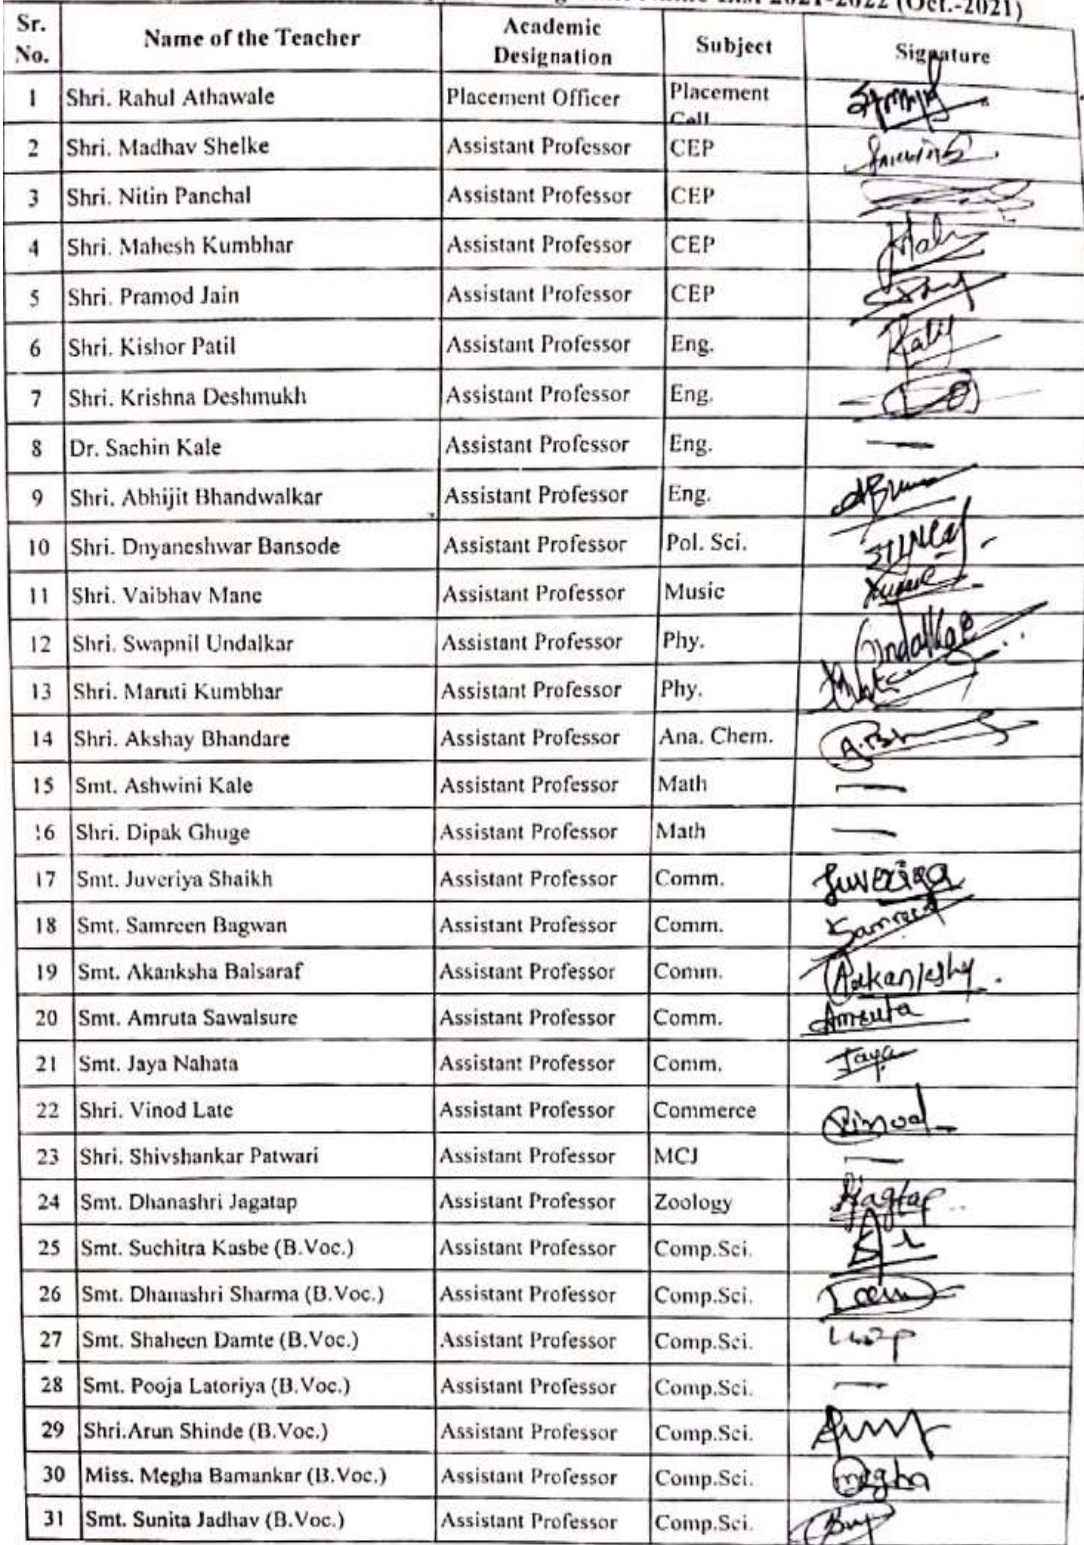 2021-2022 (Oct.-2021)
Sr. No. Name of the Teacher Academic Designation Subject Signature
1 Shri. Rahul Athawale Placement Officer Placement Cell
2 Shri. Madhav Shelke Assistant Professor CEP
3 Shri. Nitin Panchal Assistant Professor CEP
4 Shri. Mahesh Kumbhar Assistant Professor CEP
5 Shri. Pramod Jain Assistant Professor CEP
6 Shri. Kishor Patil Assistant Professor Eng.
7 Shri. Krishna Deshmukh Assistant Professor Eng.
8 Dr. Sachin Kale Assistant Professor Eng. —
9 Shri. Abhijit Bhandwalkar Assistant Professor Eng.
10 Shri. Dnyaneshwar Bansode Assistant Professor Pol. Sci.
11 Shri. Vaibhav Mane Assistant Professor Music
12 Shri. Swapnil Undalkar Assistant Professor Phy. Undalkar
13 Shri. Maruti Kumbhar Assistant Professor Phy.
14 Shri. Akshay Bhandare Assistant Professor Ana. Chem.
15 Smt. Ashwini Kale Assistant Professor Math —
16 Shri. Dipak Ghuge Assistant Professor Math —
17 Smt. Juveriya Shaikh Assistant Professor Comm. Juveriya
18 Smt. Samreen Bagwan Assistant Professor Comm. Samreen
19 Smt. Akanksha Balsaraf Assistant Professor Comm.
20 Smt. Amruta Sawalsure Assistant Professor Comm. Amruta
21 Smt. Jaya Nahata Assistant Professor Comm. Jaya
22 Shri. Vinod Late Assistant Professor Commerce Vinod
23 Shri. Shivshankar Patwari Assistant Professor MCJ —
24 Smt. Dhanashri Jagatap Assistant Professor Zoology Jagtap
25 Smt. Suchitra Kasbe (B.Voc.) Assistant Professor Comp.Sci.
26 Smt. Dhanashri Sharma (B.Voc.) Assistant Professor Comp.Sci.
27 Smt. Shaheen Damte (B.Voc.) Assistant Professor Comp.Sci.
28 Smt. Pooja Latoriya (B.Voc.) Assistant Professor Comp.Sci. —
29 Shri.Arun Shinde (B.Voc.) Assistant Professor Comp.Sci.
30 Miss. Megha Bamankar (B.Voc.) Assistant Professor Comp.Sci. Megha
31 Smt. Sunita Jadhav (B.Voc.) Assistant Professor Comp.Sci.